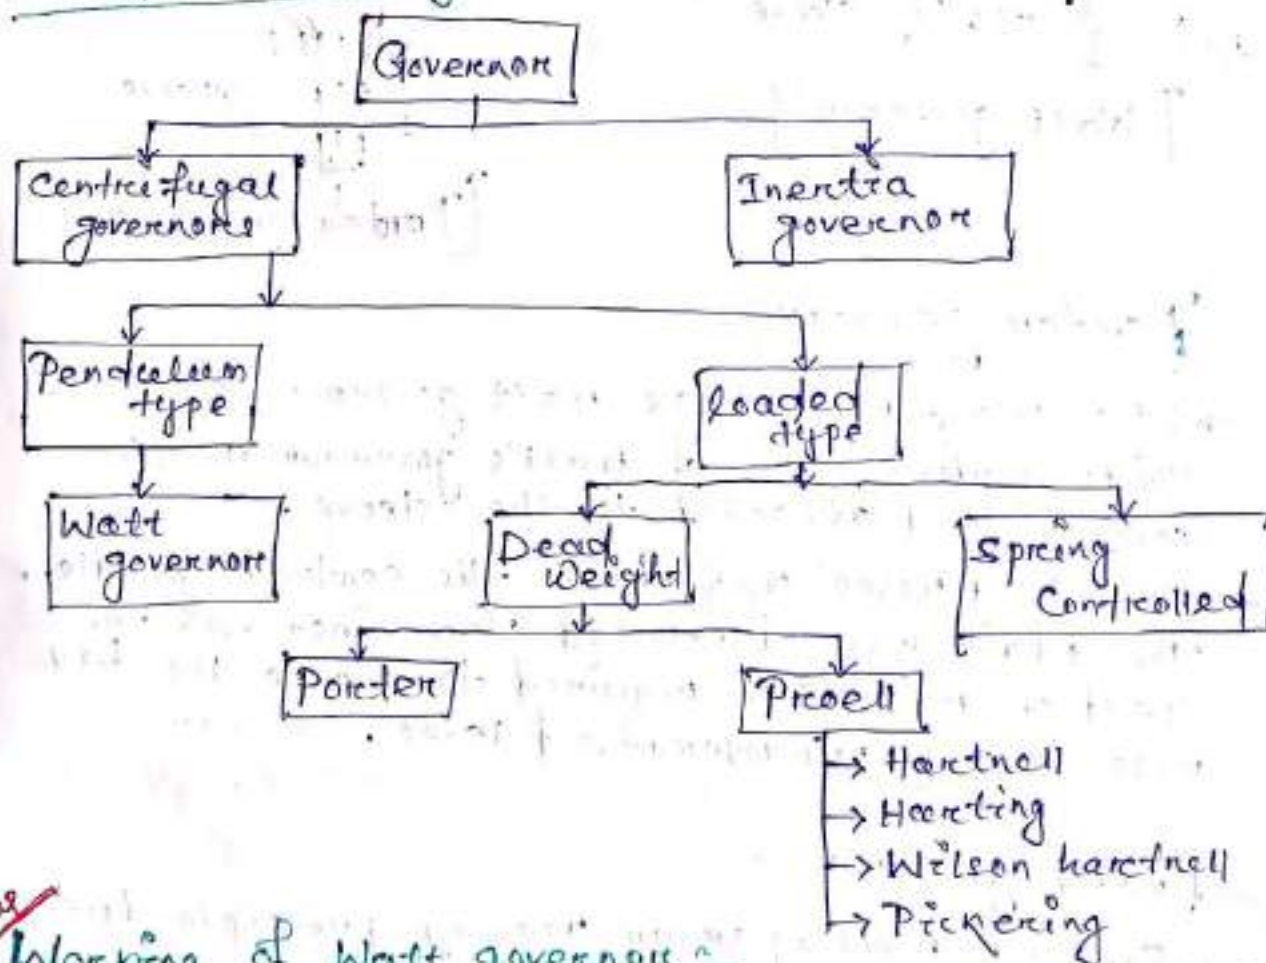 Governor
Centrifugal
governors
Inertia
governor
Pendulum
type
loaded
type
Watt
governor
Dead
weight
Spring
Controlled
Porter
Proell
Hartnell
Harting
Wilson hartnell
Pickering
Working of Watt governor:-